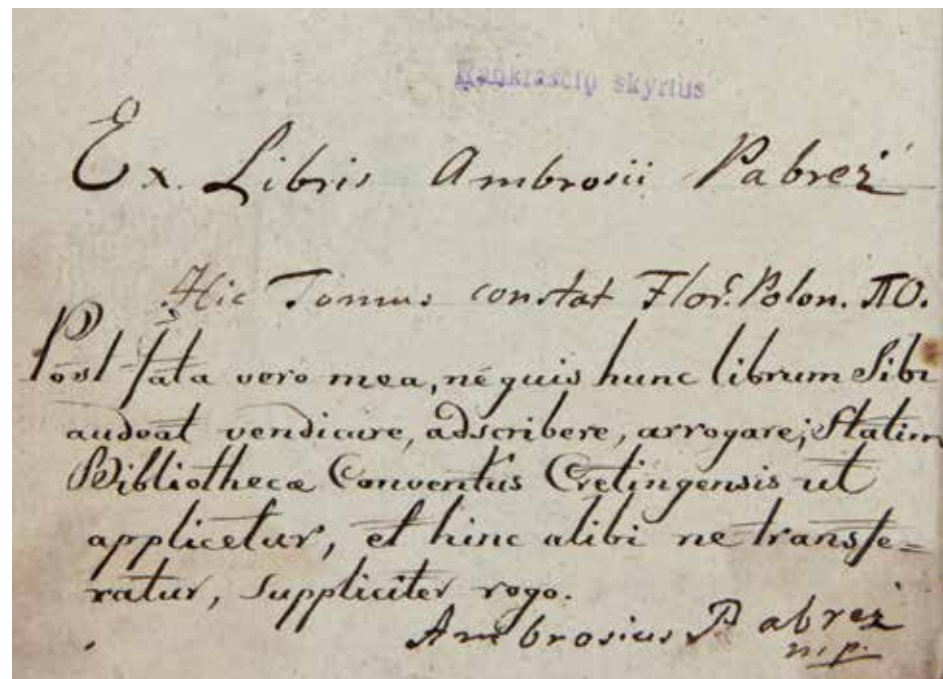 Rankraščių skyrius
Ex. Libris Ambrosii Pabreż
Hic Tomus constat Flor. Polon. 
Post fata vero mea, ne quis hunc librum Sibi
audeat vendicare, adscribere, arrogare; Statim
Bibliothecæ Conventus Cretingensis ut
applicetur, et hinc alibi ne transfe=
ratur, suppliciter rogo.
Ambrosius Pabreż
m.p.